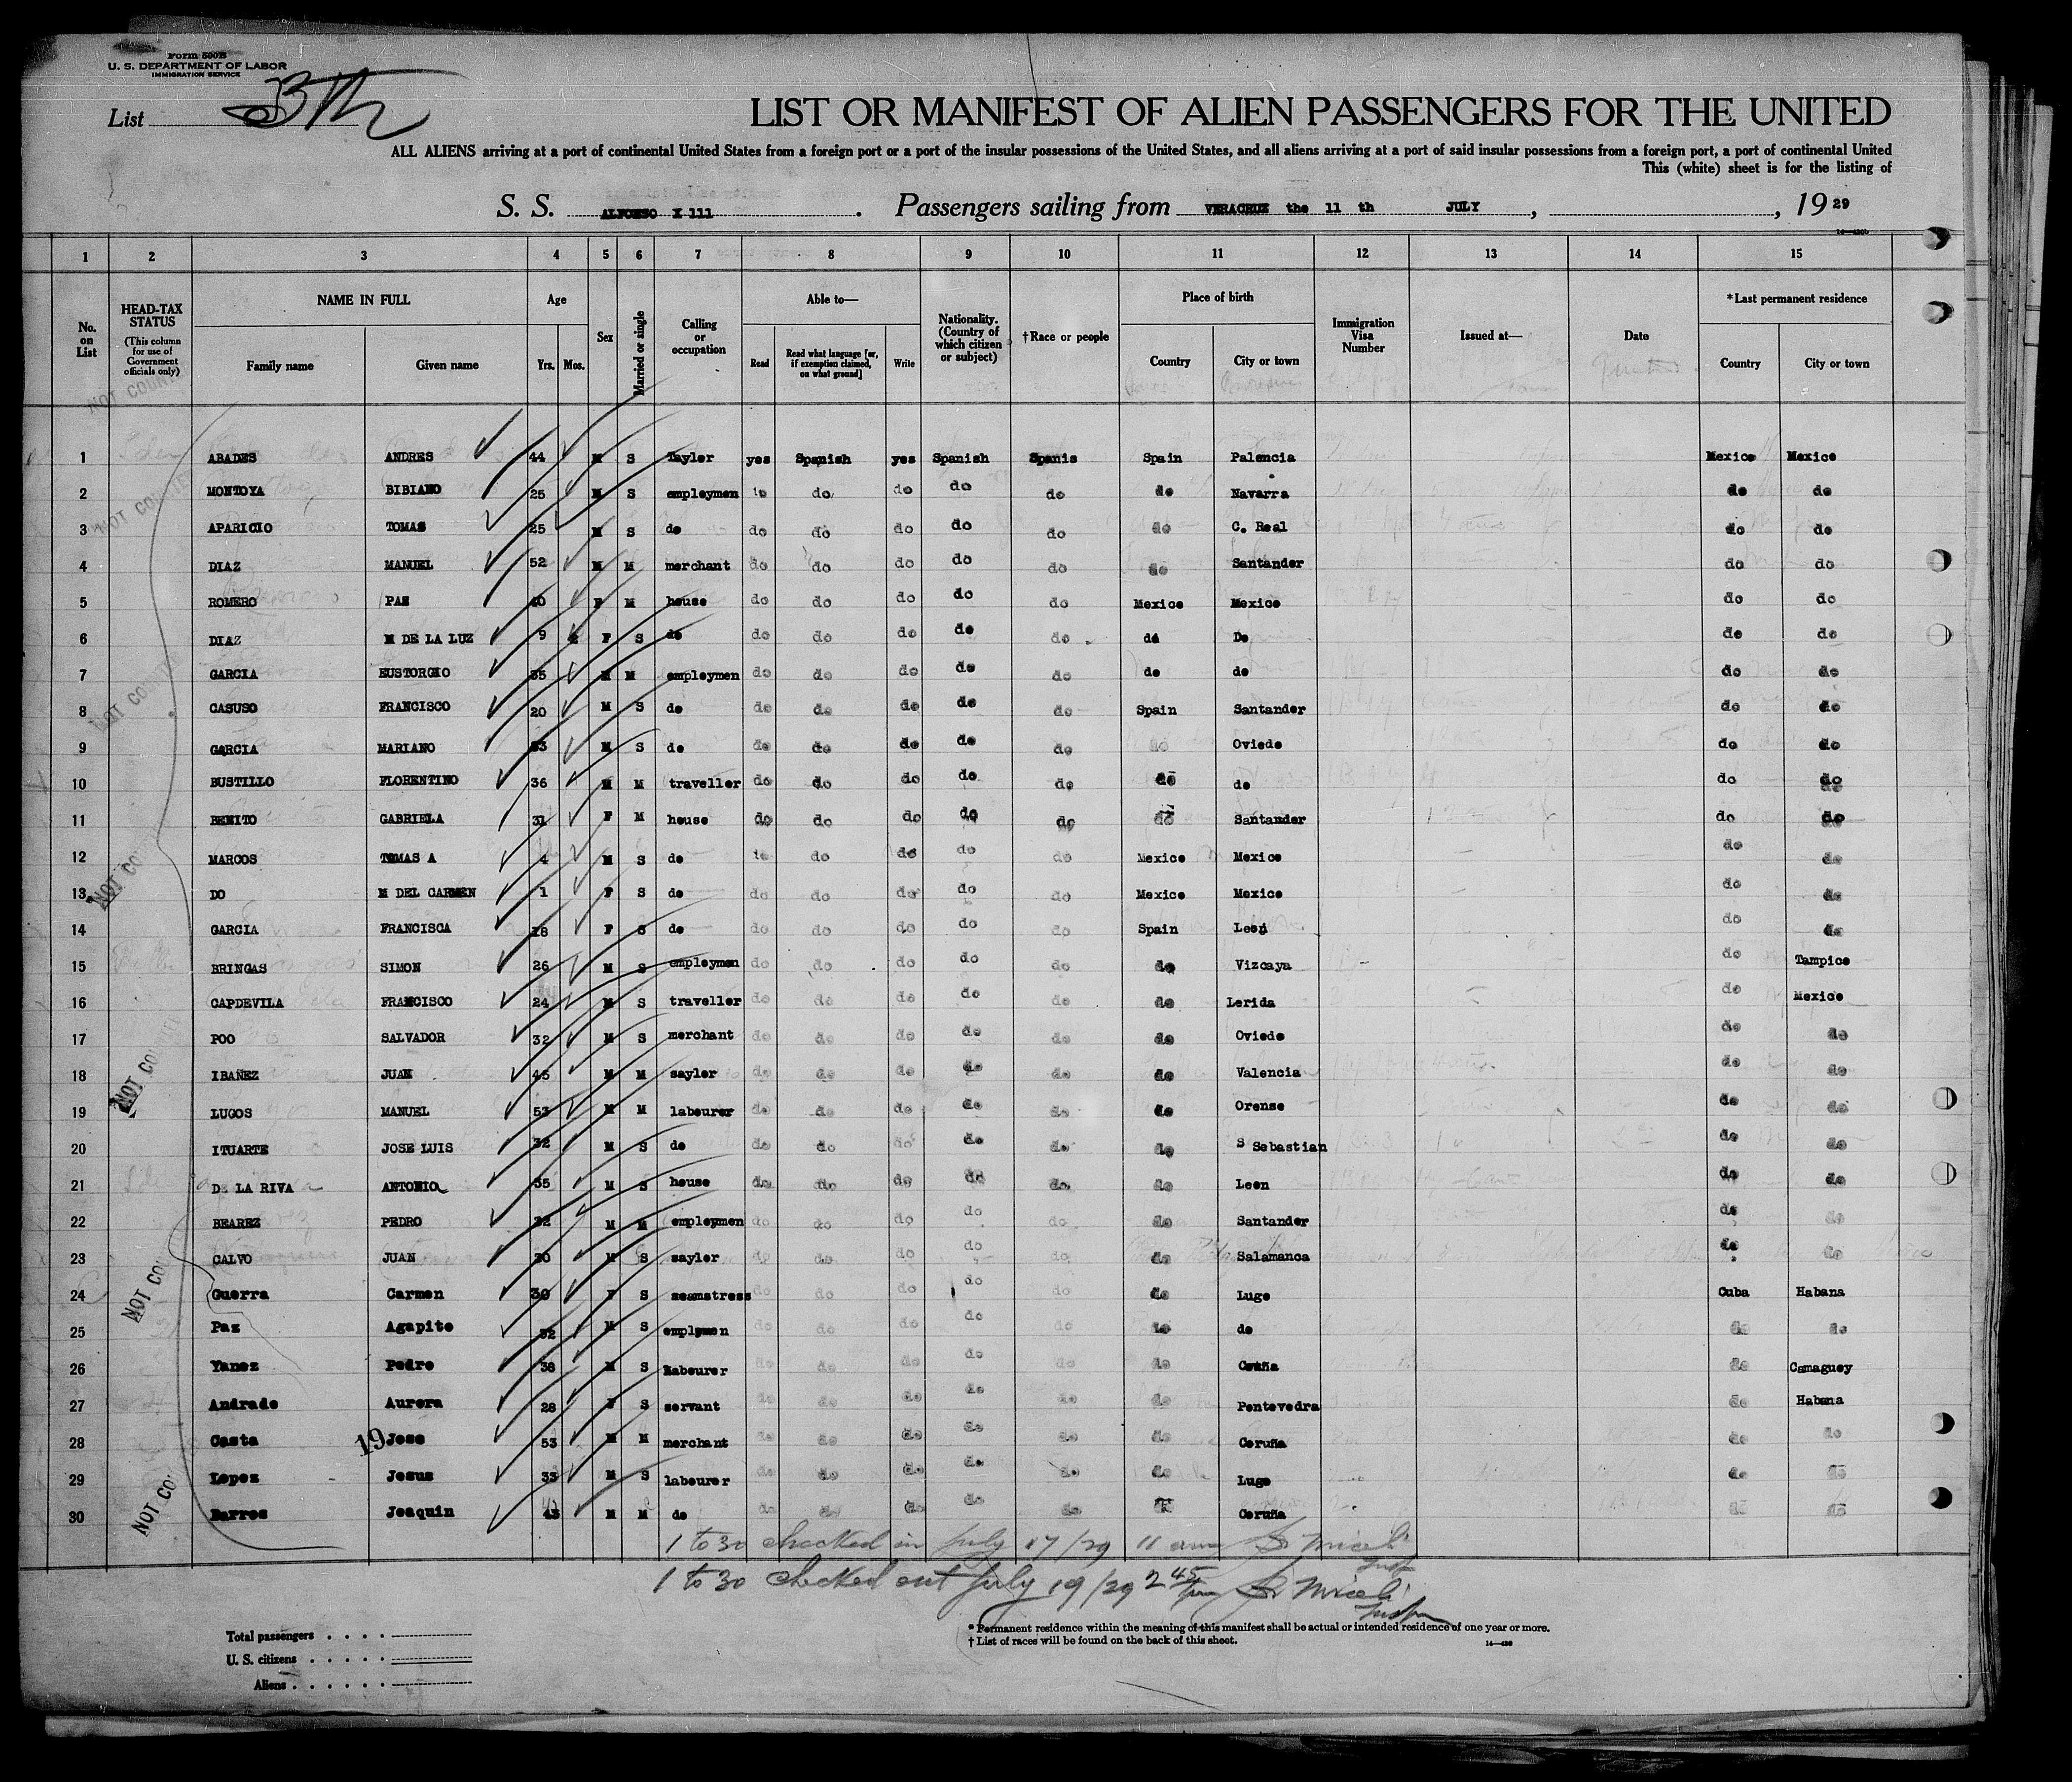 Form 500B
U. S. DEPARTMENT OF LABOR
IMMIGRATION SERVICE
List
LIST OR MANIFEST OF ALIEN PASSENGERS FOR THE UNITED
ALL ALIENS arriving at a port of continental United States from a foreign port or a port of the insular possessions of the United States, and all aliens arriving at a port of said insular possessions from a foreign port, a port of continental United
This (white) sheet is for the listing of
S. S. ALFONSO X 111 . Passengers sailing from VERACRUZ the 11 th JULY , , 19 29
1 2 3 4 5 6 7 8 9 10 11 12 13 14 15
No. on List HEAD-TAX STATUS (This column for use of Government officials only) NAME IN FULL Family name Given name Age Yrs. Mos. Sex Married or single Calling or occupation Able to— Read Read what language [or, if exemption claimed, on what ground] Write Nationality. (Country of which citizen or subject) †Race or people Place of birth Country City or town Immigration Visa Number Issued at— Date *Last permanent residence Country City or town
1 ABADES ANDRES 44 M S Tayler yes Spanish yes Spanish Spanis Spain Palencia Mexico Mexico
2 MONTOYA BIBIANO 25 M S employmen do do do do do Navarra do do
3 APARICIO TOMAS 25 M S do do do do do do do C. Real do do
4 DIAZ MANUEL 52 M M merchant do do do do do do Santander do do
5 ROMERO PAZ 40 F M house do do do do do Mexico Mexico do do
6 DIAZ M DE LA LUZ 9 F S do do do do do do dd Do do do
7 GARCIA EUSTORGIO 35 M M employmen do do do do do do do do do
8 CASUSO FRANCISCO 20 M S do do do do do do Spain Santander do do
9 GARCIA MARIANO 33 M S do do do do do do do Oviedo do do
10 BUSTILLO FLORENTINO 36 M M traveller do do do do do do do do do
11 BENITO GABRIELA 31 F M house do do do do do do Santander do do
12 MARCOS TOMAS A 4 M S do do do do do Mexico Mexico do do
13 DO M DEL CARMEN 1 F S do do do do do do Mexico Mexico do do
14 GARCIA FRANCISCA 18 F S do do do do do do Spain Leon do do
15 BRINGAS SIMON 26 M S employmen do do do do do do Vizcaya do Tampico
16 CAPDEVILA FRANCISCO 24 M S traveller do do do do do do Lerida do Mexico
17 POO SALVADOR 32 M S merchant do do do do do do Oviedo do do
18 IBAÑEZ JUAN 45 M M sayler do do do do do do Valencia do do
19 LUGOS MANUEL 53 M M labourer do do do do do do Orense do do
20 ITUARTE JOSE LUIS 32 M S do do do do do do do S Sebastian do do
21 DE LA RIVA ANTONIO 35 M S house do do do do do do Leon do do
22 BEAREZ PEDRO 32 M M employmen do do do do do do Santander do do
23 CALVO JUAN 30 M S sayler do do do do do do Salamanca do do
24 Guerra Carmen 30 F S seamstress do do do do do do Lugo Cuba Habana
25 Paz Agapito 32 M S emplymen do do do do do do do do do
26 Yanez Pedro 38 M S labourer do do do do do do Coruña do Camaguey
27 Andrade Aurora 28 F S servant do do do do do do Pontevedra do Habana
28 Costa Jose 53 M M merchant do do do do do do Coruña do do
29 Lopez Jesus 33 M S labourer do do do do do do Lugo do do
30 Barros Joaquin 43 M M do do do do do do Coruña do do
19
NOT COUNTED
1 to 30 checked in July 17/29 11 am S. Miceli Insp
1 to 30 checked out July 19/29 2 45 pm S. Miceli Insp
Total passengers
U. S. citizens
Aliens
* Permanent residence within the meaning of this manifest shall be actual or intended residence of one year or more.
† List of races will be found on the back of this sheet.